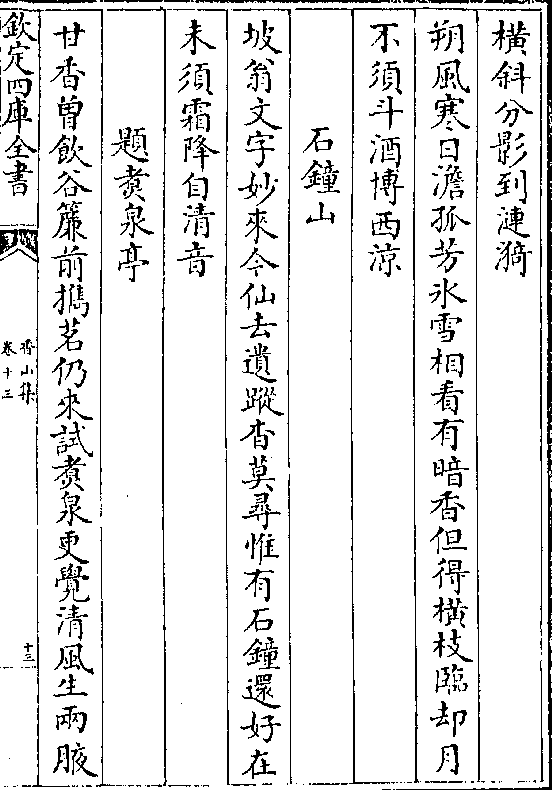 橫斜分影到漣猗
朔風寒日澹孤芳氷雪相看有暗香但得橫枝臨却月
不須斗酒博西涼
石鐘山
坡翁文字妙來今仙去遺蹤杳莫尋惟有石鐘還好在
未須霜降自清音
題煑泉亭
甘香曽飲谷簾前攜茗仍來試煑泉更覺清風生兩腋
欽定四庫全書
香山集
卷十三
十三